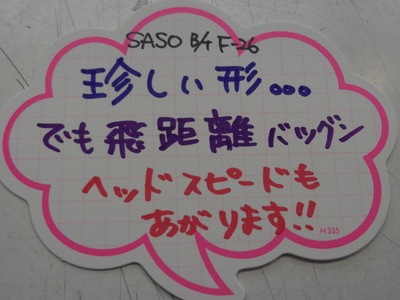 SASO B/4 F-26
珍しい形...
でも飛距離バツグン
ヘッドスピードも
あがります!!
H335